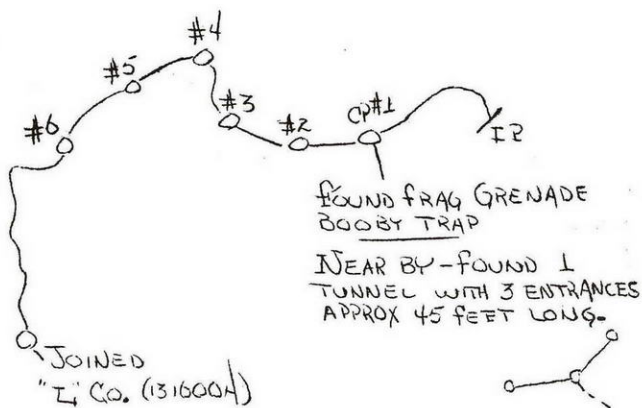 #4
#5
#3
#6
#2
CP#1
IP
FOUND FRAG GRENADE
BOOBY TRAP
NEAR BY - FOUND 1
TUNNEL WITH 3 ENTRANCES
APPROX 45 FEET LONG.
JOINED
"L" CO. (131000H)